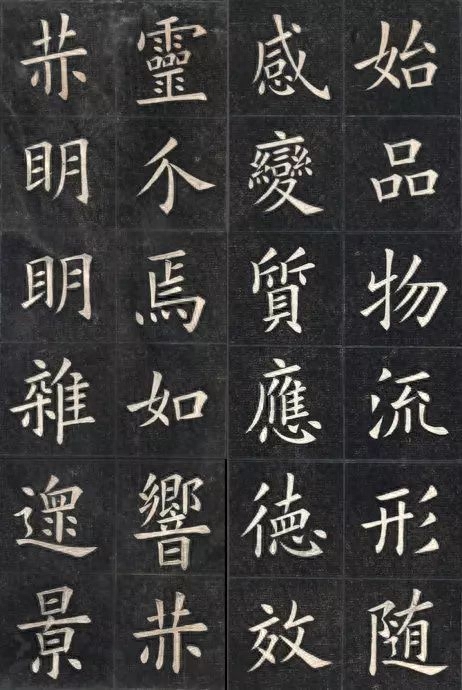 始品物流形随
感變質應德效
靈介焉如響赫
赫明明雜遝景